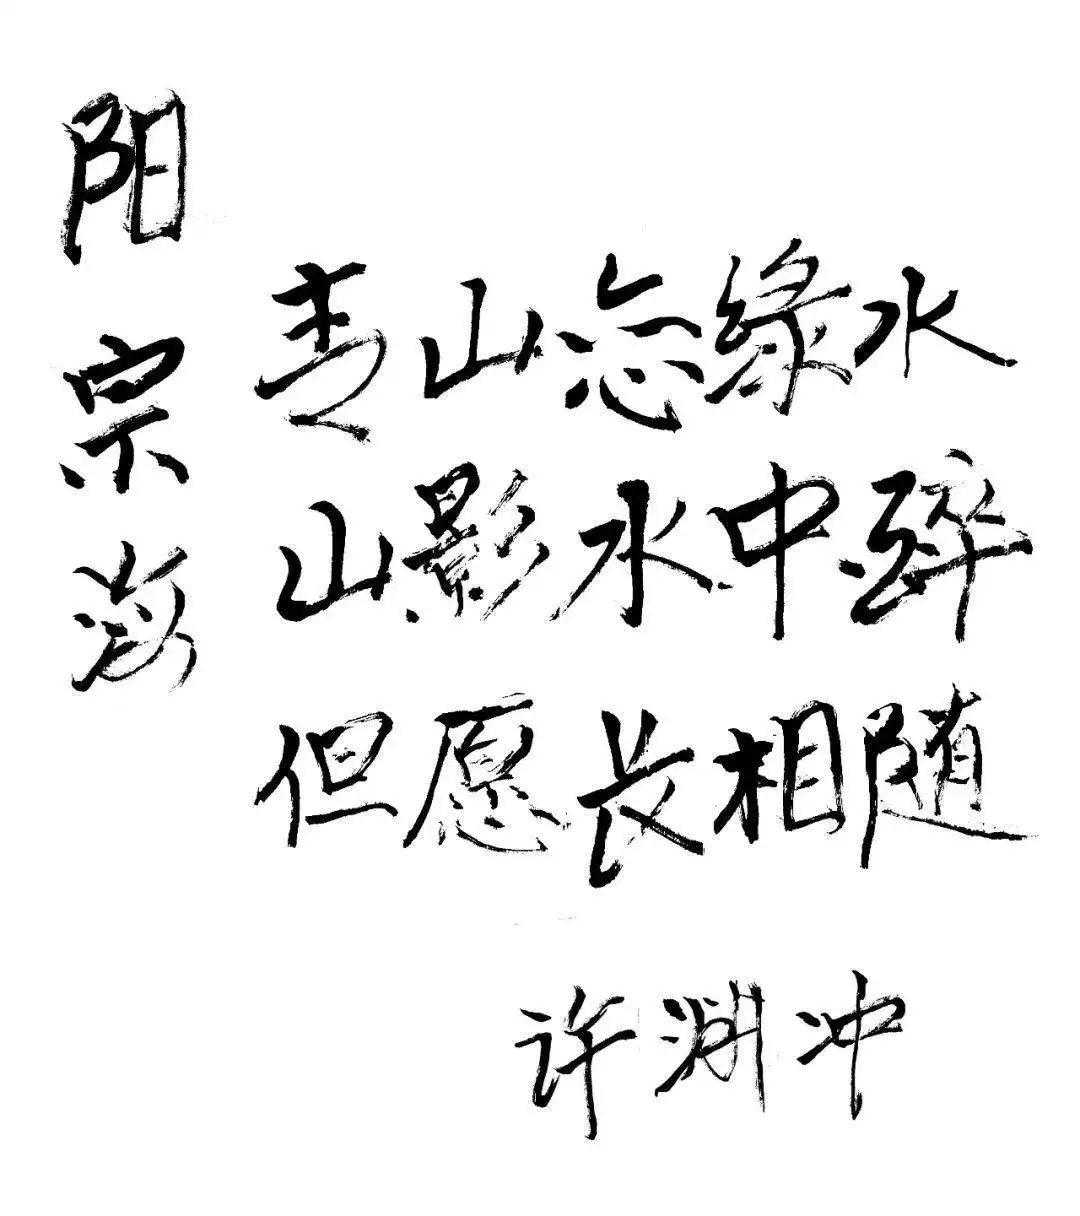 阳宗海
青山恋绿水
山影水中醉
但愿长相随
许渊冲